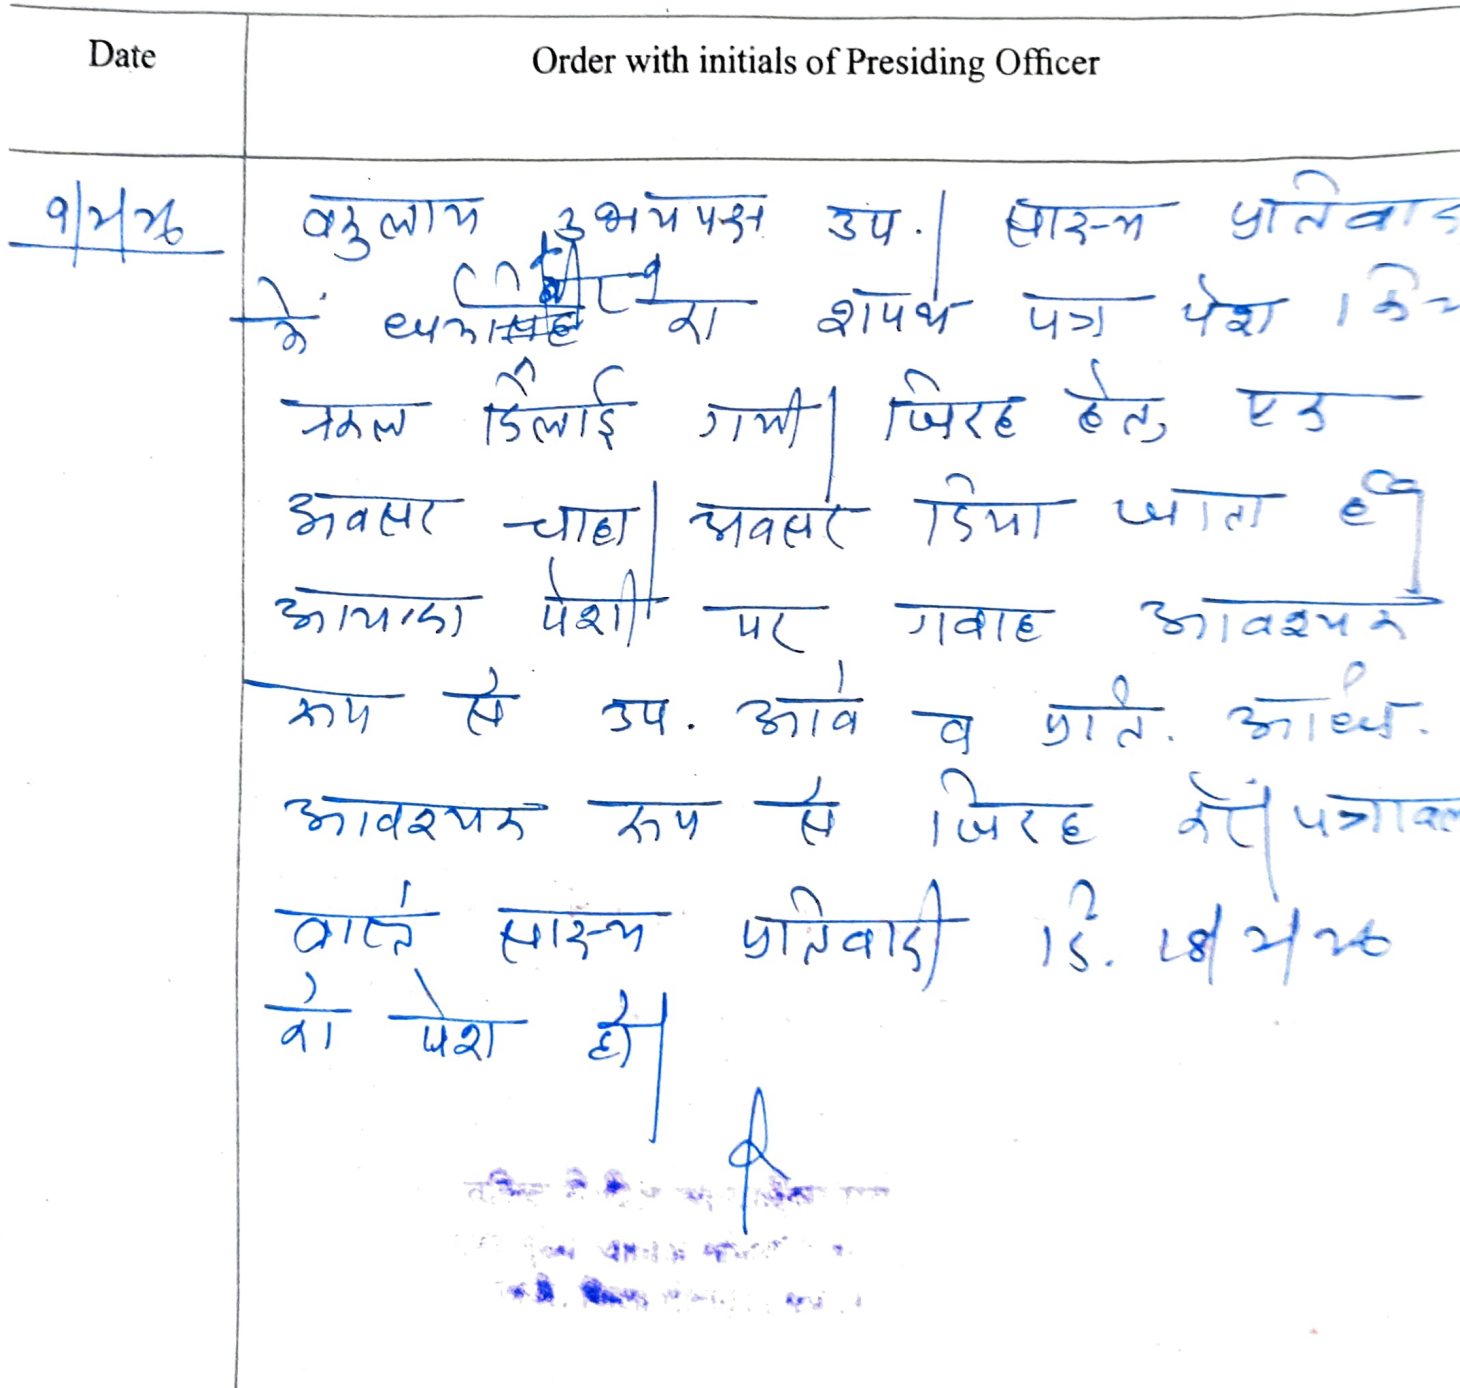 Date
Order with initials of Presiding Officer
वकुलाय उभयपक्ष उप. | साक्ष्य प्रतिवाद
में का शपथ पत्र पेश
नकल दिलाई गयी | जिरह हेतु एक
अवसर चाहा | अवसर दिया जाता है |
आगामी पेशी पर गवाह आवश्यक
रूप से उप. आवे व प्रति. अधि.
आवश्यक रूप से जिरह करें | पत्रावल
वास्ते साक्ष्य प्रतिवादी दि.
को पेश हो |